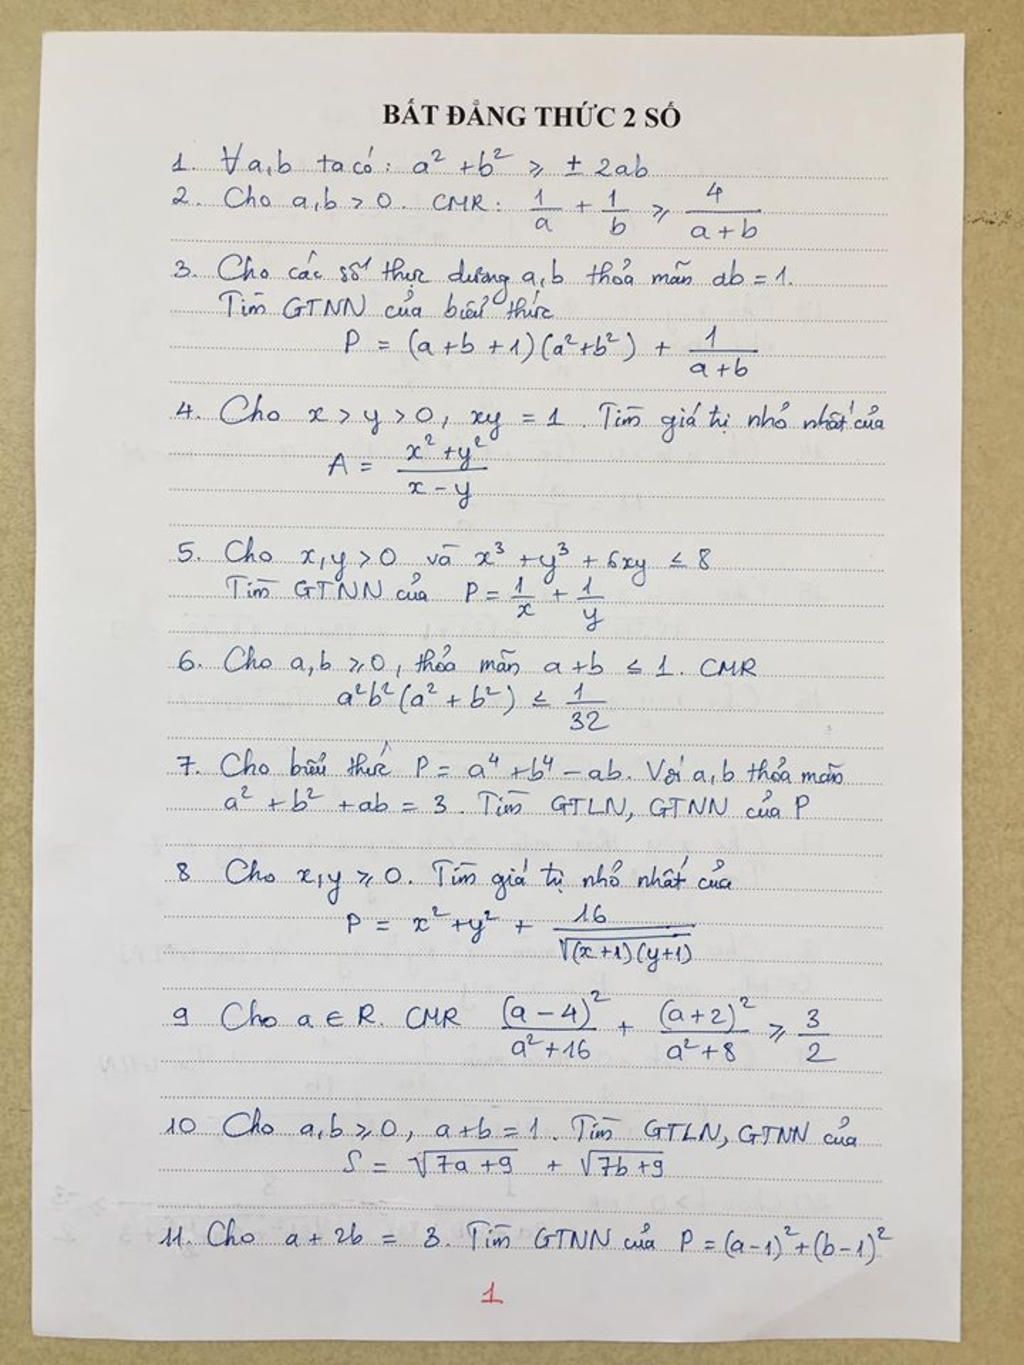 BẤT ĐẲNG THỨC 2 SỐ
1. ∀a,b ta có: a² + b² ≥ ± 2ab
2. Cho a,b > 0. CMR: 1/a + 1/b ≥ 4/(a+b)
3. Cho các số thực dương a,b thỏa mãn ab = 1.
Tìm GTNN của biểu thức
P = (a+b+1)(a²+b²) + 1/(a+b)
4. Cho x > y > 0, xy = 1. Tìm giá trị nhỏ nhất của
A = (x²+y²)/(x-y)
5. Cho x,y > 0 và x³ + y³ + 6xy ≤ 8
Tìm GTNN của P = 1/x + 1/y
6. Cho a,b ≥ 0, thỏa mãn a+b ≤ 1. CMR
a²b²(a² + b²) ≤ 1/32
7. Cho biểu thức P = a⁴ + b⁴ - ab. Với a,b thỏa mãn
a² + b² + ab = 3. Tìm GTLN, GTNN của P
8 Cho x,y ≥ 0. Tìm giá trị nhỏ nhất của
P = x² + y² + 16/√((x+1)(y+1))
9 Cho a ∈ R. CMR (a-4)²/(a²+16) + (a+2)²/(a²+8) ≥ 3/2
10 Cho a,b ≥ 0, a+b = 1. Tìm GTLN, GTNN của
S = √(7a+9) + √(7b+9)
11. Cho a + 2b = 3. Tìm GTNN của P = (a-1)² + (b-1)²
1